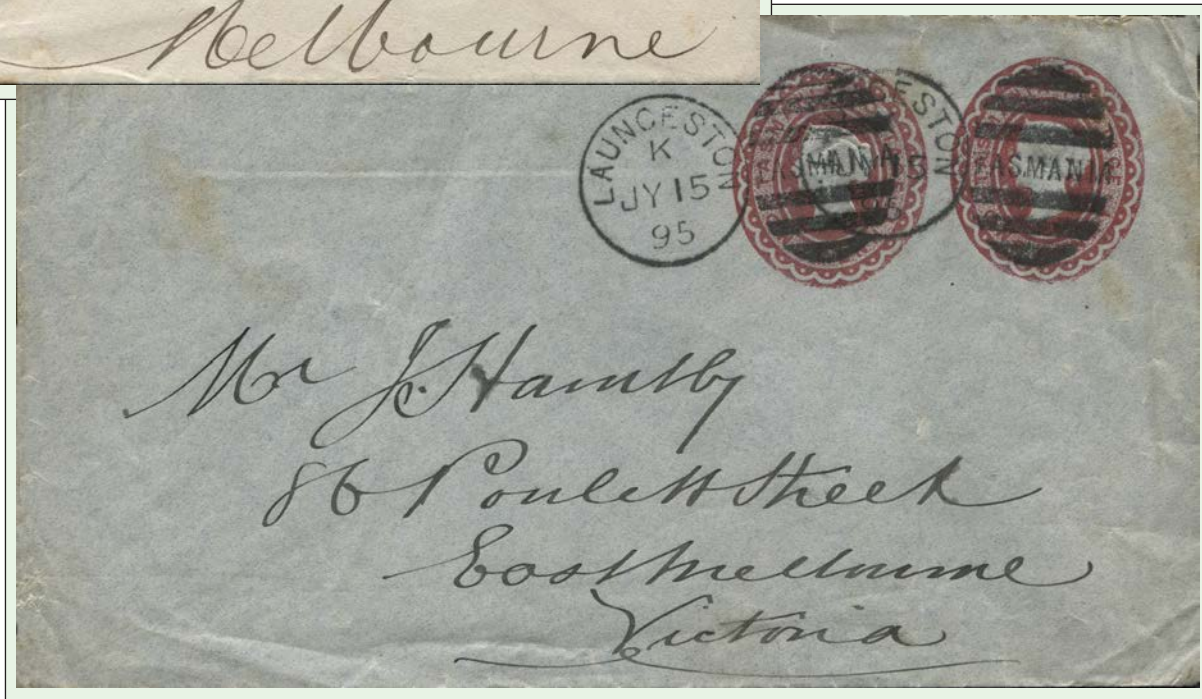 Melbourne
LAUNCESTON
K
JY 15
95
TASMANIA
TASMANIA
Mr J.
86 Poulett Street
East Melbourne
Victoria